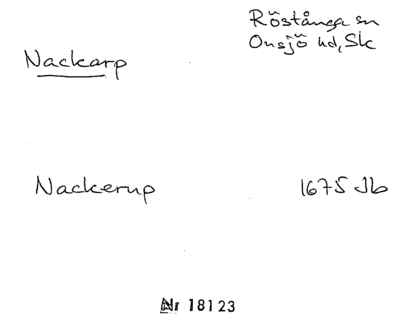 Röstånga sn
Onsjö hd, Sk
Nackarp
Nackerup 1675 Jb
Nr 18123